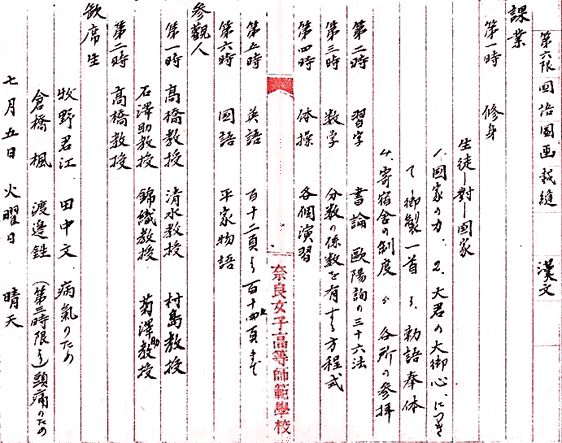 第六限 図治図画裁縫 漢文
課業
第一時 修身
生徒ー對ー國家
1、國家の力、2、大君の大御心につき
て、御製一首 3、勅語奉体
4、寄宿舎の制度 5、各所の参拝
第二時 習字 書論 歐陽詢の三十六法
第三時 数学 分数の係数を有する方程式
第四時 体操 各個演習
奈良女子高等師範學校
第五時 英語 百十二頁より百十四頁まで
第六時 國語 平家物語
參觀人
第一時 高橋教授 清水教授 村島教授
石澤助教授 錦織教授 菊澤助教授
第二時 高橋教授
欽席生
牧野君江 田中文 病氣のため
倉橋楓 渡邊鉎 (第三時限より)頭痛のため
七月五日 火曜日 晴天